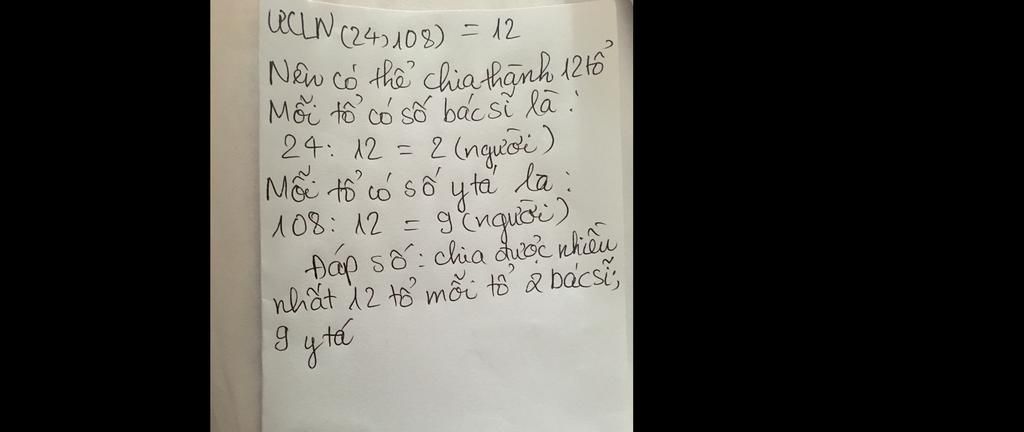 ƯCLN (24,108) = 12
Nên có thể chia thành 12 tổ
Mỗi tổ có số bác sĩ là :
24 : 12 = 2 (người)
Mỗi tổ có số y tá là :
108 : 12 = 9 (người)
Đáp số : chia được nhiều
nhất 12 tổ mỗi tổ 2 bác sĩ,
9 y tá